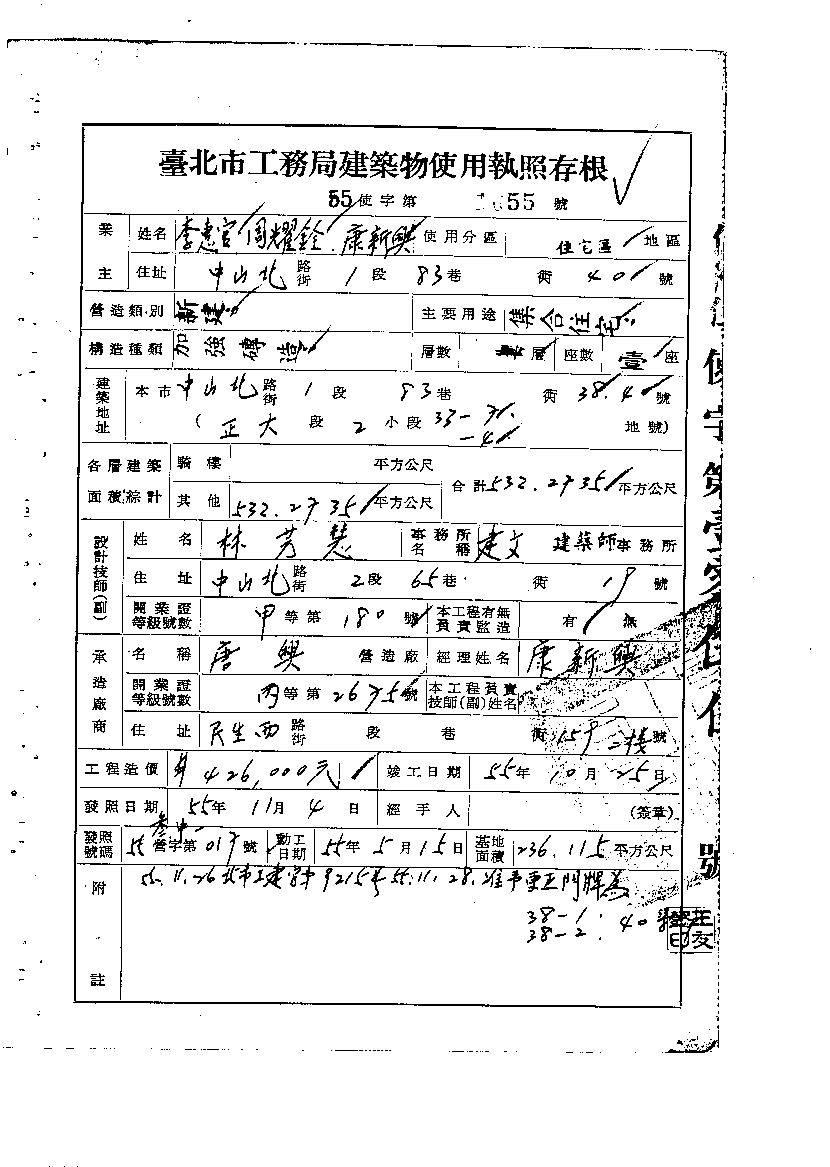 臺北市工務局建築物使用執照存根
55使字第 1655 號
業主 姓名 李惠官 周耀銓 康新興 使用分區 住宅區 地區
住址 中山北 路街 1 段 83 巷 街 40 號
營造類別 新建 主要用途 集合住宅
構造種類 加強磚造 層數 層 座數 壹 座
建築地址 本市 中山北 路街 1 段 83 巷 街 38.40 號
( 正大 段 2 小段 33- 地號)
各層建築面積綜計 騎樓 平方公尺 合計 532.2735 平方公尺
其他 532.2735 平方公尺
設計技師(副) 姓名 林芳慧 事務所名稱 建文 建築師事務所
住址 中山北 路街 2 段 65 巷 街 19 號
開業證等級號數 甲 等第 180 號 本工程有無負責監造 有 無
承造廠商 名稱 唐興 營造廠 經理姓名 康新興
開業證等級號數 丙 等第 2675 號 本工程負責技師(副)姓名
住址 民生西 路街 段 巷 街 159 二樓 號
工程造價 426,000元 竣工日期 55年10月25日
發照日期 55年11月4日 經手人 (簽章)
發照號碼 55 營字第 017 號 動工日期 55年5月15日 基地面積 236.115 平方公尺
附註 55.11.26北市工建字第9215號55.11.28.准予更正門牌為
38-1:40號
38-2: